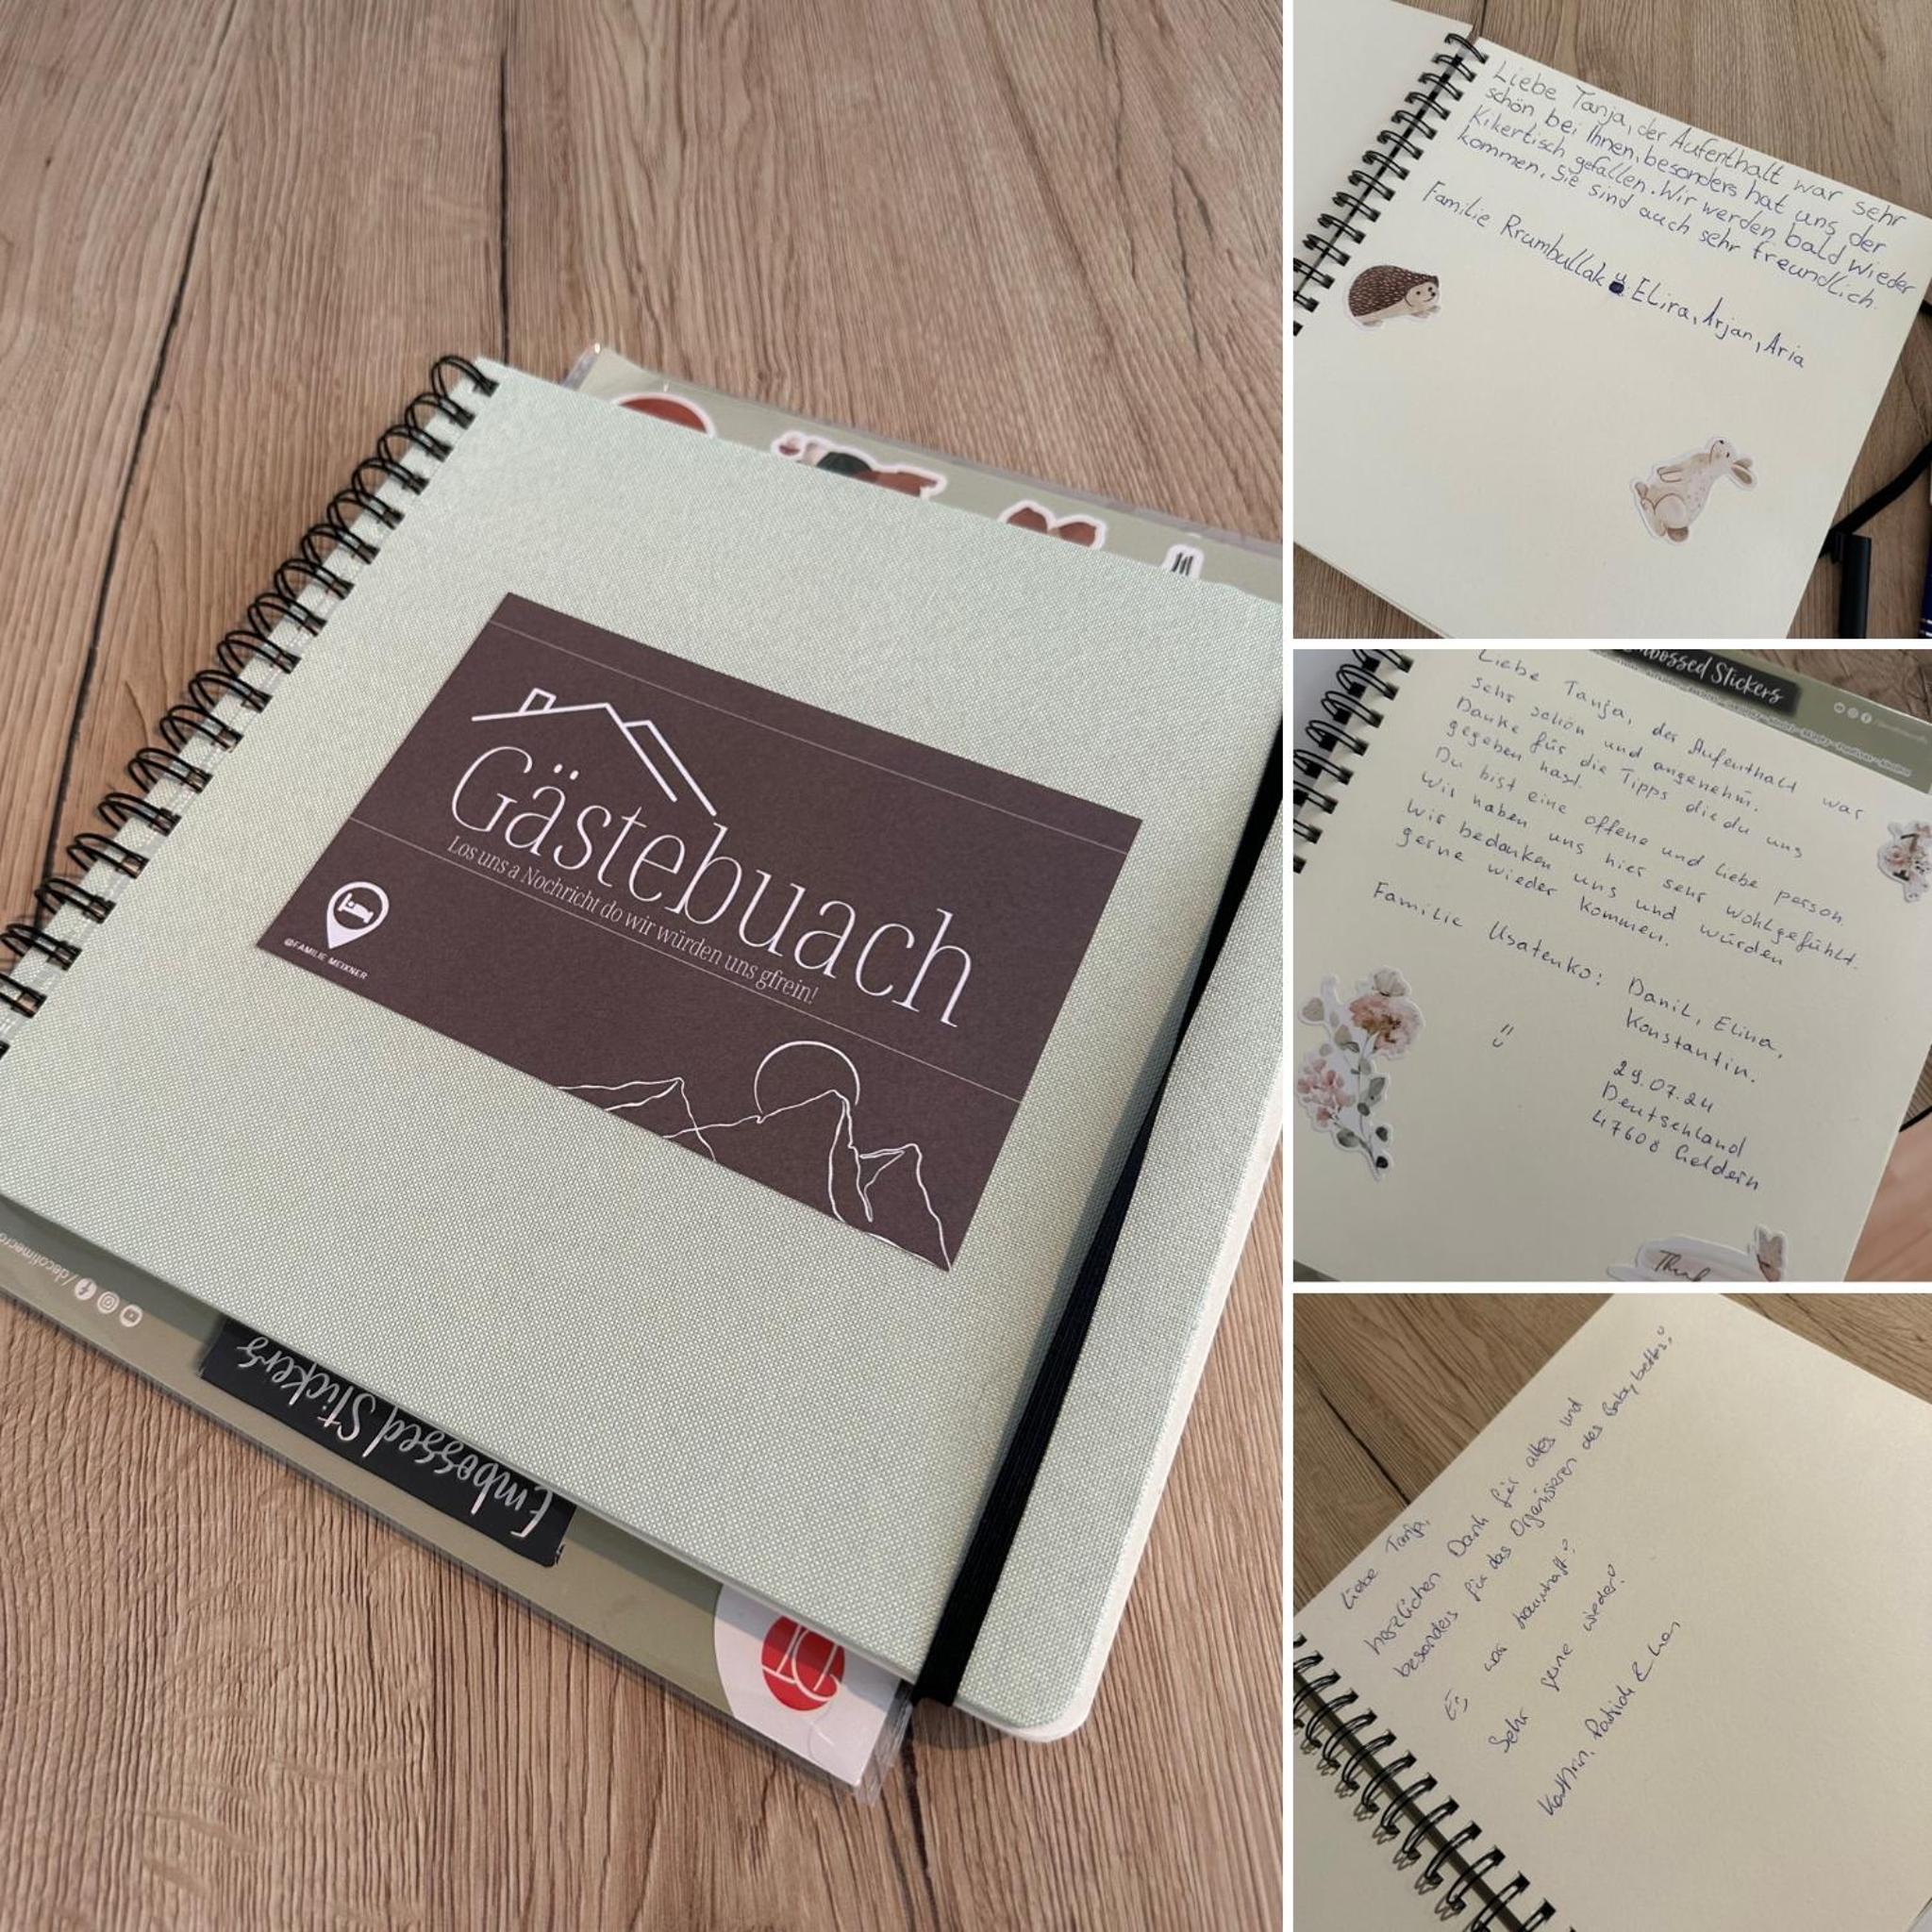 Gästebuach
Los uns a Nochricht do wir würden uns gfrein!
@FAMILIE MEIXNER
Embossed Stickers
Liebe Tanja, der Aufenthalt war sehr
schön bei Ihnen, besonders hat uns der
Kikertisch gefallen. Wir werden bald wieder
kommen. Sie sind auch sehr freundlich.
Familie Rrumbullak Elira, Arjan, Aria
Embossed Stickers
Liebe Tanja, der Aufenthalt war
sehr schön und angenehm.
Danke für die Tipps die du uns
gegeben hast.
Du bist eine offene und liebe person.
Wir haben uns hier sehr wohlgefühlt.
Wir bedanken uns und würden
gerne wieder kommen.
Familie Usatenko: Danil, Elina,
Konstantin.
29.07.24
Deutschland
47608 Geldern
Liebe Tanja,
herzlichen Dank für alles und
besonders für das Organisieren des Babybettes!
Es war traumhaft!
Sehr gerne wieder!
Kathrin, Patrick &